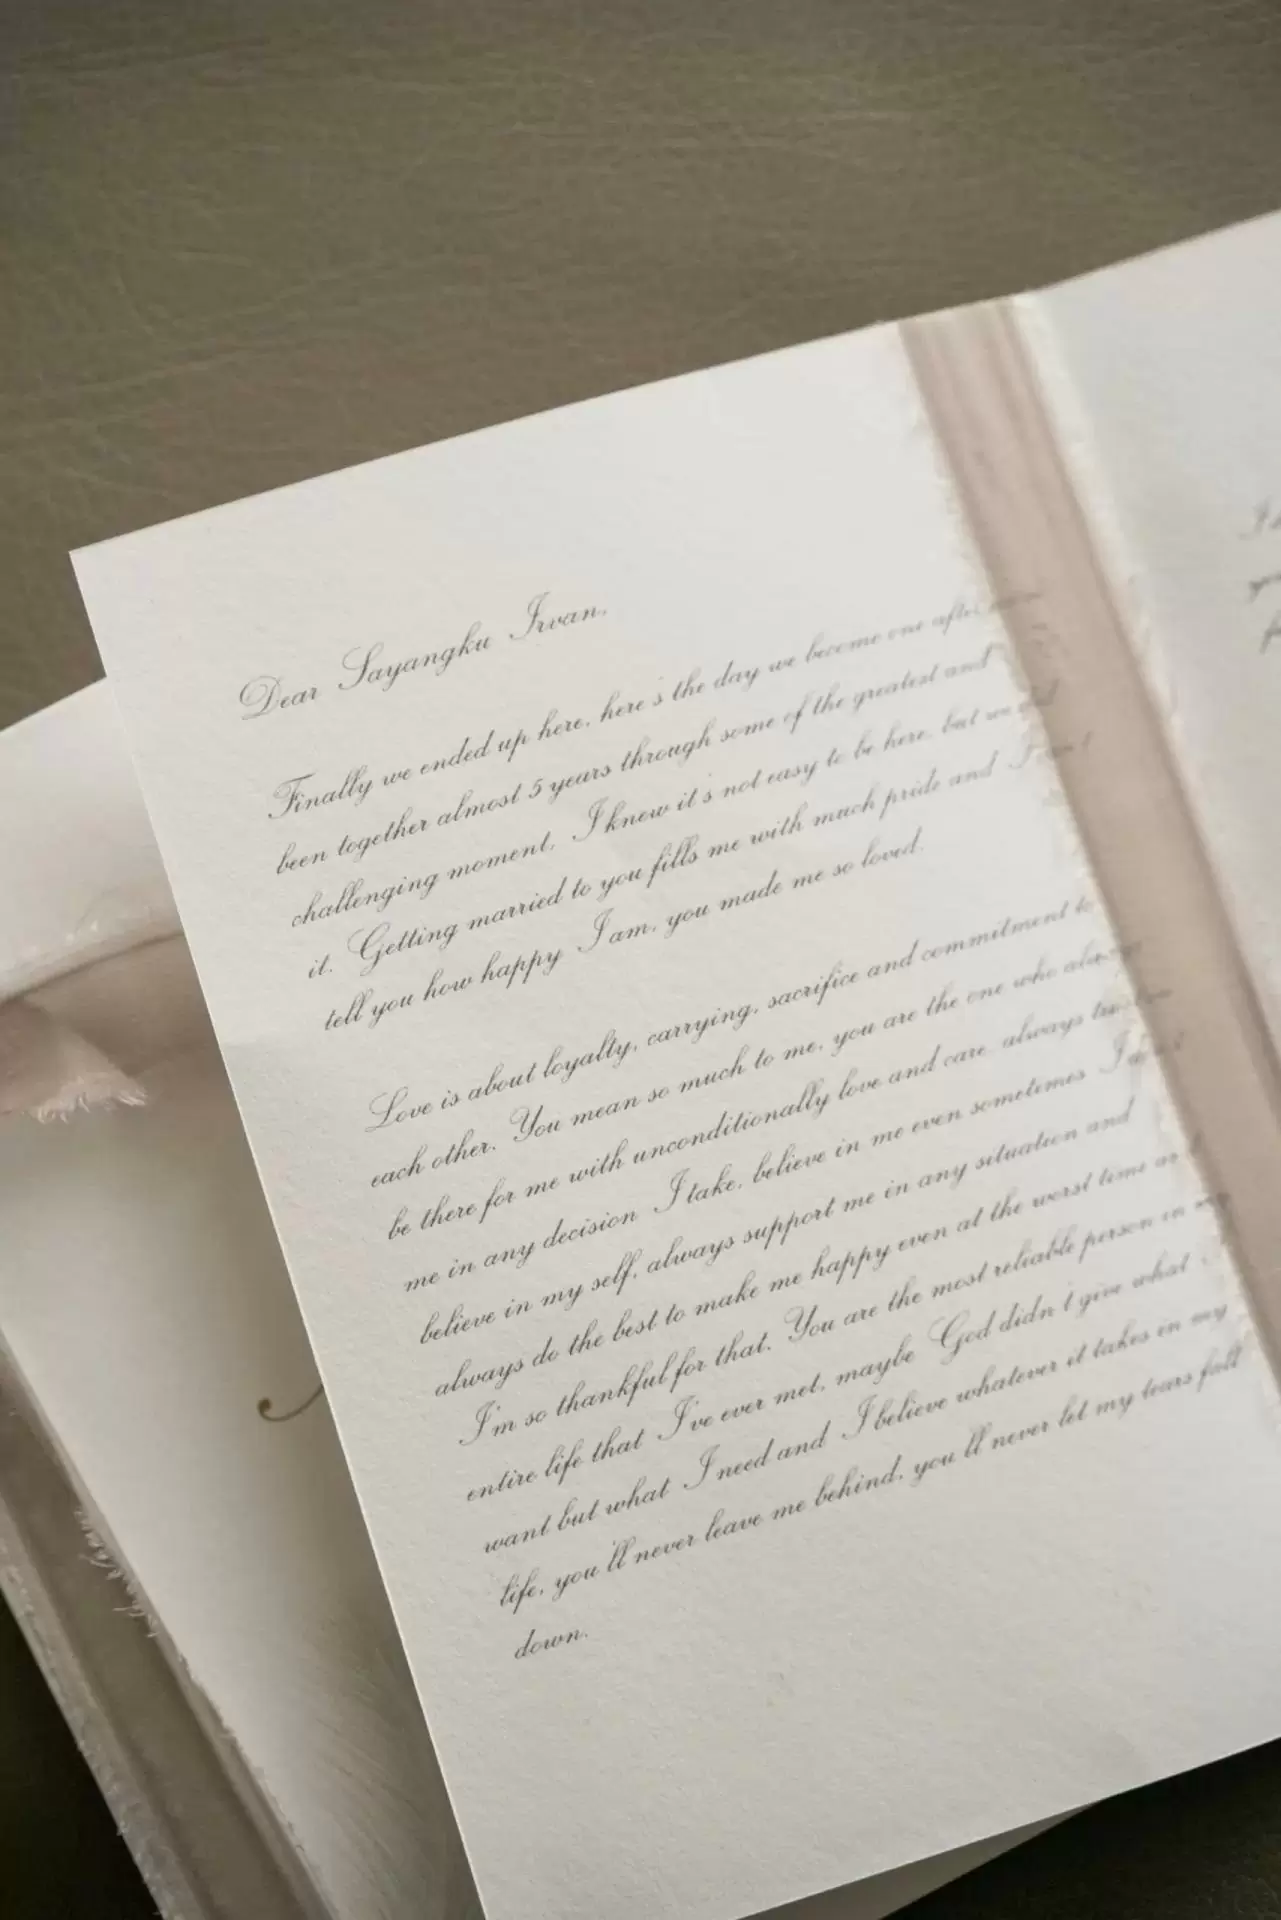 Dear Sayangku Irvan,
Finally we ended up here, here's the day we become one after
been together almost 5 years through some of the greatest and
challenging moment, I know it's not easy to be here, but we did
it. Getting married to you fills me with much pride and I can't
tell you how happy I am, you made me so loved.
Love is about loyalty, carrying, sacrifice and commitment to
each other. You mean so much to me, you are the one who always
be there for me with unconditionally love and care, always trust on
me in any decision I take, believe in me even sometimes I don't
believe in my self, always support me in any situation and
always do the best to make me happy even at the worst time
I'm so thankful for that. You are the most reliable person in my
entire life that I've ever met, maybe God didn't give what I
want but what I need and I believe whatever it takes in my
life, you'll never leave me behind, you'll never let my tears fall
down.